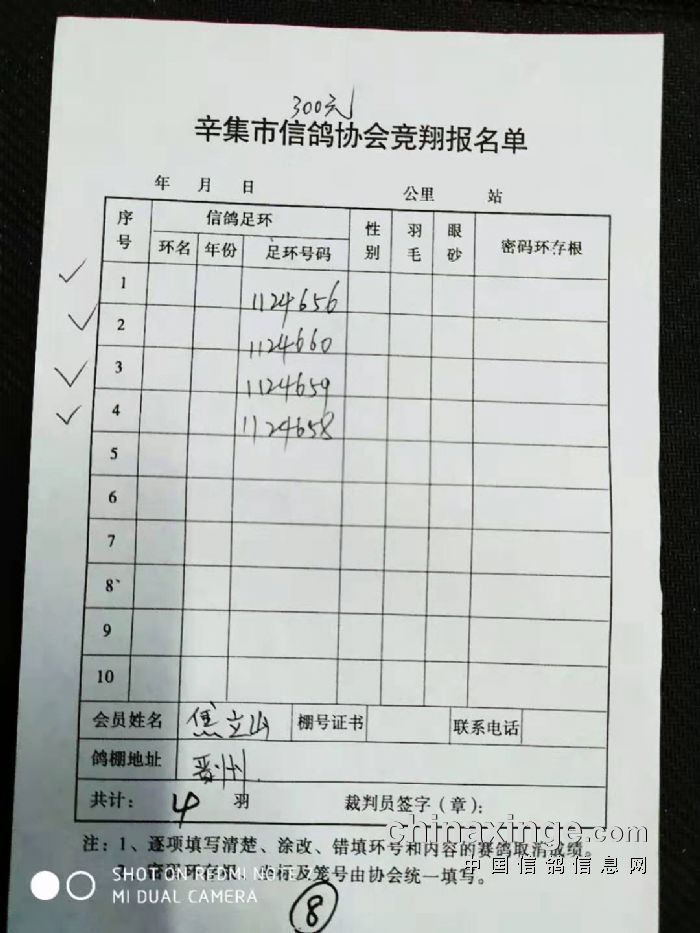 300元
辛集市信鸽协会竞翔报名单
年 月 日 公里 站
序号 信鸽足环 性别 羽毛 眼砂 密码环存根
环名 年份 足环号码
1 1124656
2 1124660
3 1124659
4 1124658
5
6
7
8
9
10
会员姓名 焦立山 棚号证书 联系电话
鸽棚地址 晋州
共计： 4 羽 裁判员签字（章）：
注：1、逐项填写清楚、涂改、错填环号和内容的赛鸽取消成绩。
chinaxinge.com
中国信鸽信息网
及笼号由协会统一填写。
SHOT ON REDMI NOTE
MI DUAL CAMERA
8